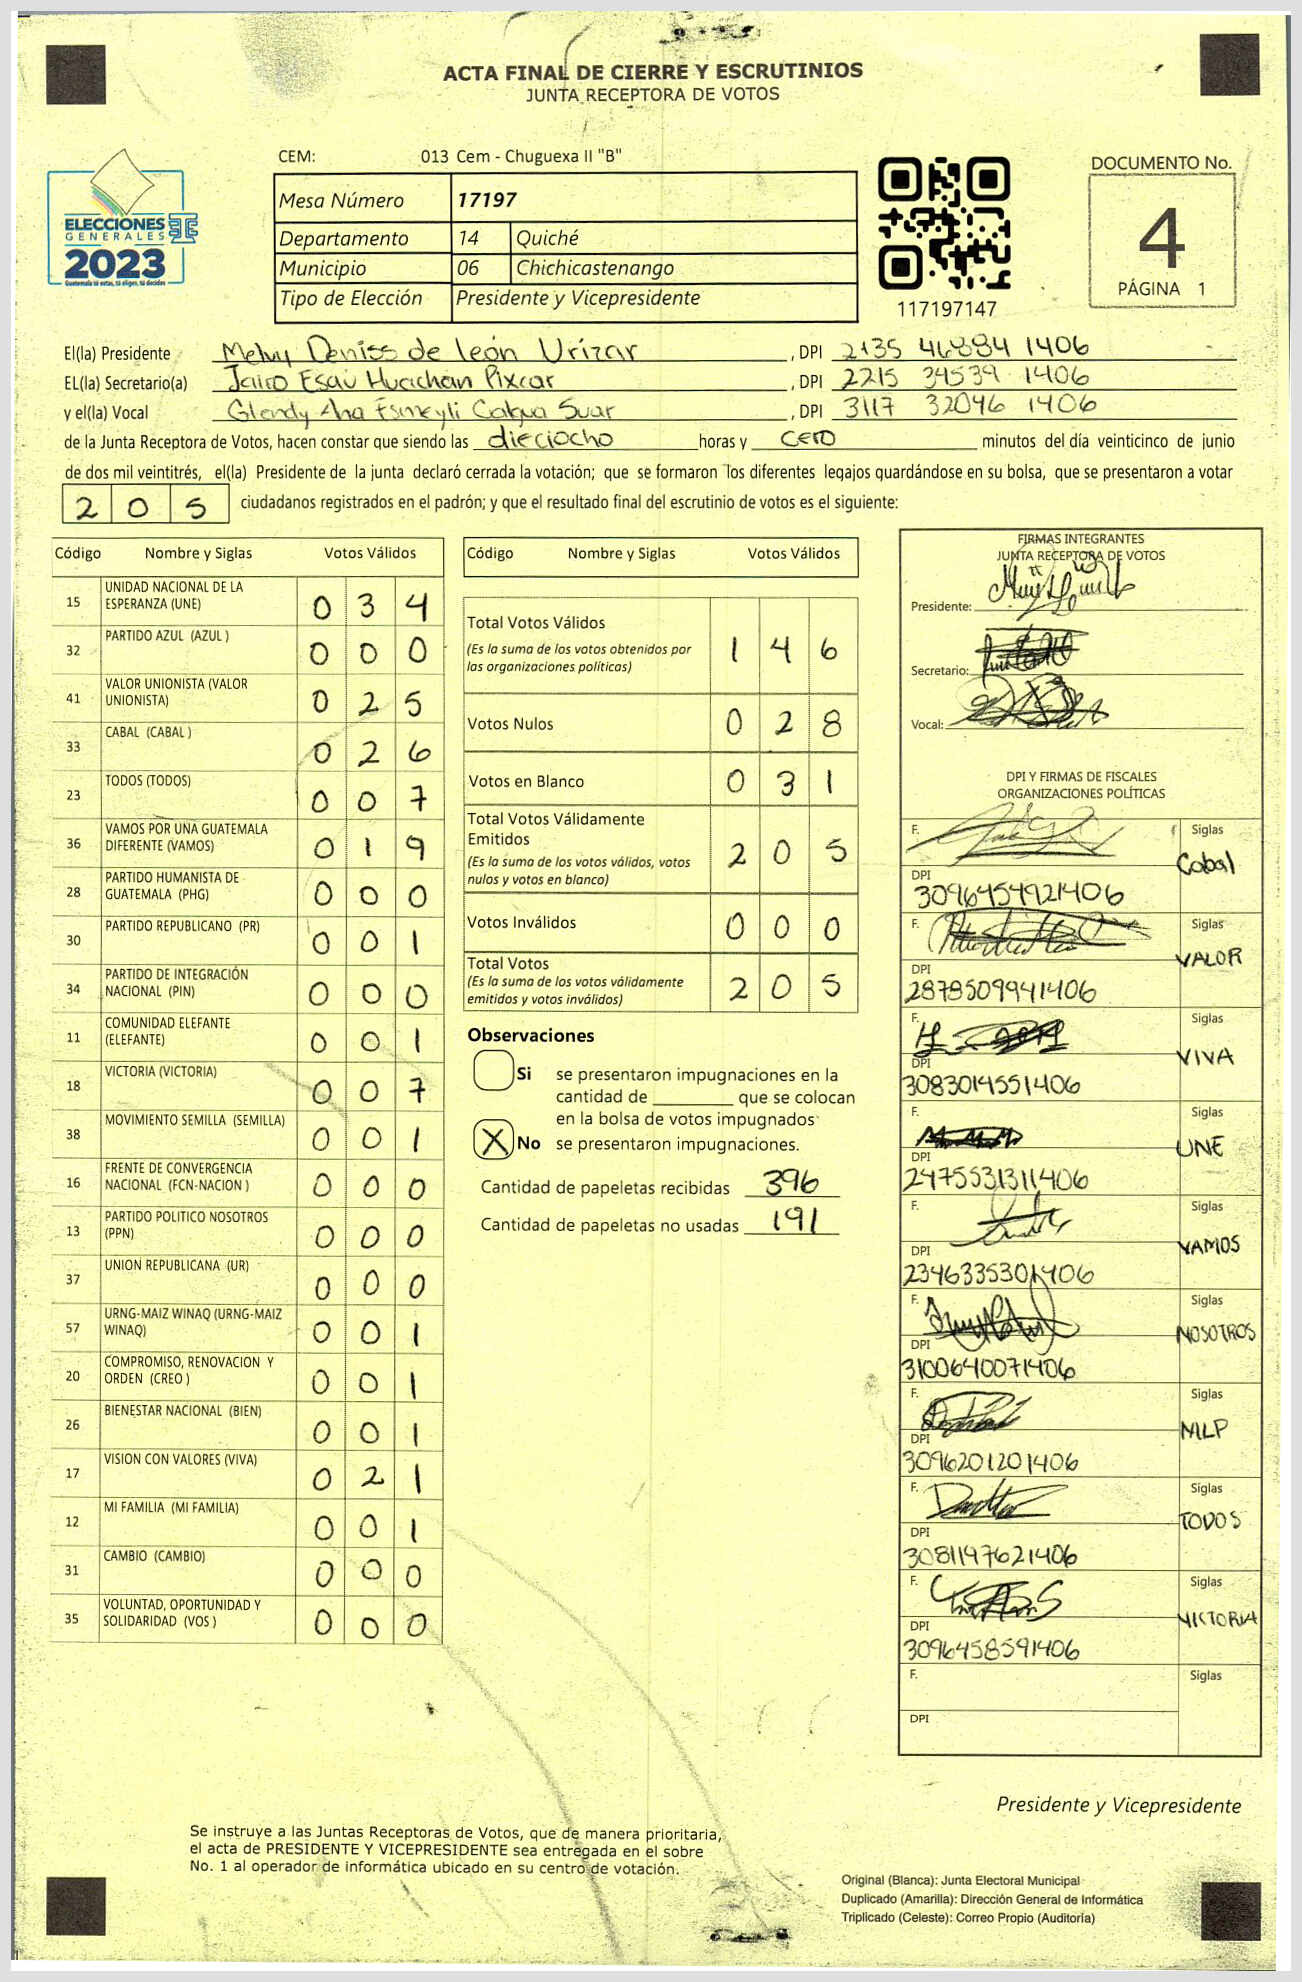 ACTA FINAL DE CIERRE Y ESCRUTINIOS
JUNTA RECEPTORA DE VOTOS
ELECCIONES
GENERALES
2023
CEM: 013 Cem - Chuguexa II "B"
Mesa Número 17197
Departamento 14 Quiché
Municipio 06 Chichicastenango
Tipo de Elección Presidente y Vicepresidente
117197147
DOCUMENTO No.
4
PÁGINA 1
El(la) Presidente Melvy Deniss de león Urízar , DPI 2135 46884 1406
EL(la) Secretario(a) Jairo Esaú Huachan Pixcar , DPI 2215 34539 1406
y el(la) Vocal Glendy Ana Esmeyli Calgua Suar , DPI 3117 32046 1406
de la Junta Receptora de Votos, hacen constar que siendo las dieciocho horas y cero minutos del día veinticinco de junio
de dos mil veintitrés, el(la) Presidente de la junta declaró cerrada la votación; que se formaron los diferentes legajos guardándose en su bolsa, que se presentaron a votar
205 ciudadanos registrados en el padrón; y que el resultado final del escrutinio de votos es el siguiente:
Código Nombre y Siglas Votos Válidos
15 UNIDAD NACIONAL DE LA ESPERANZA (UNE) 034
32 PARTIDO AZUL (AZUL ) 000
41 VALOR UNIONISTA (VALOR UNIONISTA) 025
33 CABAL (CABAL ) 026
23 TODOS (TODOS) 007
36 VAMOS POR UNA GUATEMALA DIFERENTE (VAMOS) 019
28 PARTIDO HUMANISTA DE GUATEMALA (PHG) 000
30 PARTIDO REPUBLICANO (PR) 001
34 PARTIDO DE INTEGRACIÓN NACIONAL (PIN) 000
11 COMUNIDAD ELEFANTE (ELEFANTE) 001
18 VICTORIA (VICTORIA) 007
38 MOVIMIENTO SEMILLA (SEMILLA) 001
16 FRENTE DE CONVERGENCIA NACIONAL (FCN-NACION ) 000
13 PARTIDO POLITICO NOSOTROS (PPN) 000
37 UNION REPUBLICANA (UR) 000
57 URNG-MAIZ WINAQ (URNG-MAIZ WINAQ) 001
20 COMPROMISO, RENOVACION Y ORDEN (CREO ) 001
26 BIENESTAR NACIONAL (BIEN) 001
17 VISION CON VALORES (VIVA) 021
12 MI FAMILIA (MI FAMILIA) 001
31 CAMBIO (CAMBIO) 000
35 VOLUNTAD, OPORTUNIDAD Y SOLIDARIDAD (VOS ) 000
Código Nombre y Siglas Votos Válidos
Total Votos Válidos 146
(Es la suma de los votos obtenidos por
las organizaciones políticas)
Votos Nulos 028
Votos en Blanco 031
Total Votos Válidamente
Emitidos 205
(Es la suma de los votos válidos, votos
nulos y votos en blanco)
Votos Inválidos 000
Total Votos 205
(Es la suma de los votos válidamente
emitidos y votos inválidos)
Observaciones
Si se presentaron impugnaciones en la
cantidad de ________ que se colocan
en la bolsa de votos impugnados
X No se presentaron impugnaciones.
Cantidad de papeletas recibidas 396
Cantidad de papeletas no usadas 191
FIRMAS INTEGRANTES
JUNTA RECEPTORA DE VOTOS
Presidente:
Secretario:
Vocal:
DPI Y FIRMAS DE FISCALES
ORGANIZACIONES POLÍTICAS
F. Siglas
Cabal
DPI
3096454921406
F. Siglas
VALOR
DPI
2878509941406
F. Siglas
VIVA
DPI
3083014551406
F. Siglas
UNE
DPI
2475531311406
F. Siglas
VAMOS
DPI
2346335301406
F. Siglas
NOSOTROS
DPI
3100640071406
F. Siglas
MLP
DPI
3096201201406
F. Siglas
TODOS
DPI
3081197621406
F. Siglas
VICTORIA
DPI
3096458591406
F. Siglas
DPI
Presidente y Vicepresidente
Se instruye a las Juntas Receptoras de Votos, que de manera prioritaria,
el acta de PRESIDENTE Y VICEPRESIDENTE sea entregada en el sobre
No. 1 al operador de informática ubicado en su centro de votación.
Original (Blanca): Junta Electoral Municipal
Duplicado (Amarilla): Dirección General de Informática
Triplicado (Celeste): Correo Propio (Auditoría)